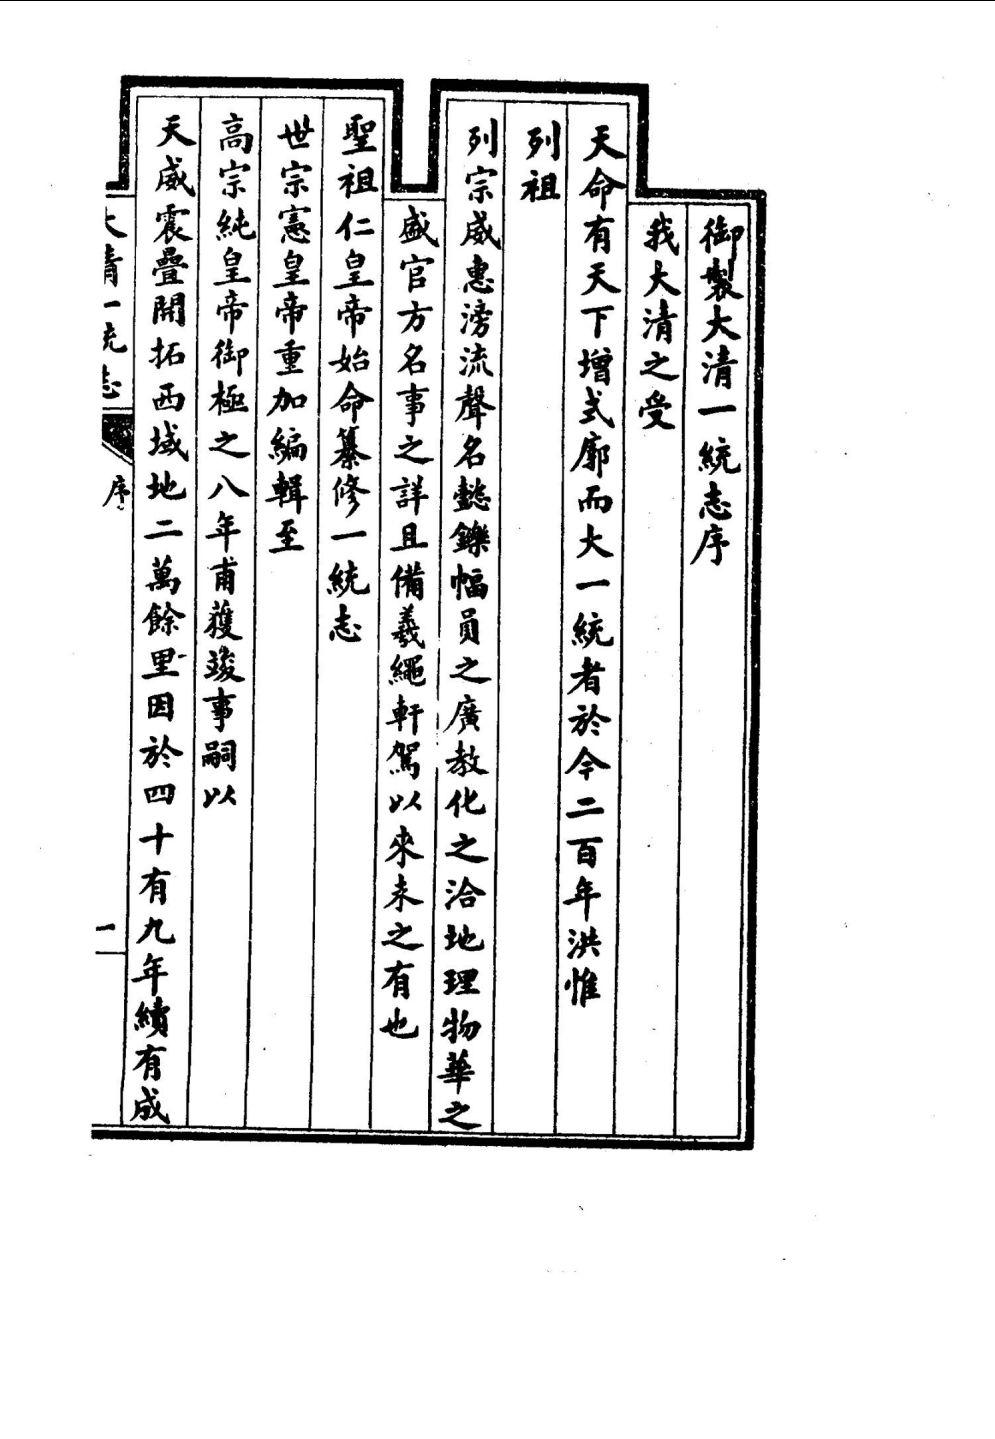 御製大清一統志序
我大清之受
天命有天下增式廓而大一統者於今二百年洪惟
列祖
列宗威惠滂流聲名懿鑠幅員之廣教化之洽地理物華之
盛官方名事之詳且備羲繩軒駕以來未之有也
聖祖仁皇帝始命纂修一統志
世宗憲皇帝重加編輯至
高宗純皇帝御極之八年甫蕆竣事嗣以
天威震疊開拓西域地二萬餘里因於四十有九年續有成
大清一統志
序
一